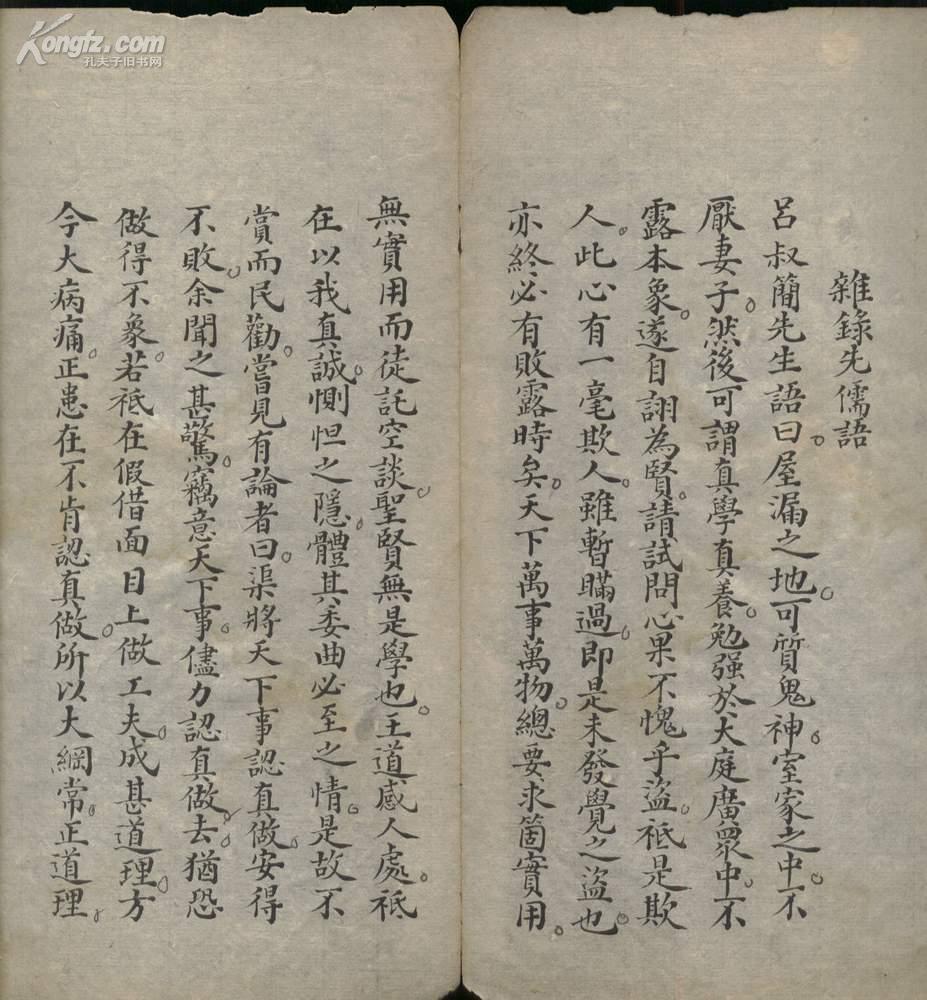 Kongfz.com
孔夫子旧书网
雜錄先儒語
呂叔簡先生語曰。屋漏之地。可質鬼神。室家之中。不
厭妻子。然後可謂真學真養。勉强於大庭廣衆中。不
露本象。遂自詡為賢。請試問心果不愧乎。盜。祇是欺
人。此心有一毫欺人。雖暫瞞過。即是未發覺之盜也。
亦終必有敗露時矣。天下萬事萬物。總要求箇實用。
無實用而徒託空談。聖賢無是學也。王道感人處。祇
在以我真誠。惻怛之隱。體其委曲必至之情。是故不
賞而民勸。嘗見有論者曰。渠將天下事認真做。安得
不敗。余聞之甚驚。竊意天下事。儘力認真做去。猶恐
做得不象。若祇在假借面目上做工夫。成甚道理。方
今大病痛。正患在不肯認真做。所以大綱常。正道理。